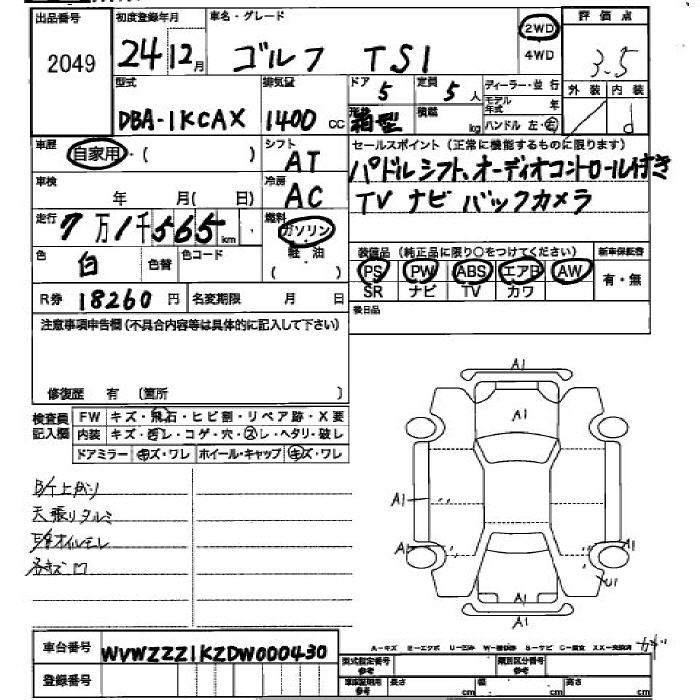 出品番号
2049
初度登録年月
24 12月
車名・グレード
ゴルフ TSI
2WD
4WD
評価点
3.5
外装 内装
d
型式
DBA-1KCAX
排気量
1400 CC
ドア
5
定員
5人
形状
箱型
積載
kg
ディーラー・並行
モデル年式 年
ハンドル 左・右
車歴
自家用・( )
シフト
AT
セールスポイント(正常に機能するものに限ります)
パドルシフト、オーディオコントロール付き
TV ナビ バックカメラ
車検
年 月( 日)
冷房
AC
走行
7万1千565km
燃料
ガソリン
軽・油
( )
色
白
色替
色コード
装備品(純正品に限り○をつけてください)
新車保証書
PS PW ABS エアB AW
SR ナビ TV カワ
有・無
R券 18260円
名変期限 月 日
後日品
注意事項申告欄(不具合内容等は具体的に記入して下さい)
修復歴 有 〔箇所 〕
検査員記入欄
FW キズ・飛石・ヒビ割・リペア跡・X要
内装 キズ・ヨゴレ・コゲ・穴・スレ・ヘタリ・破レ
ドアミラー キズ・ワレ ホイール・キャップ キズ・ワレ
天張リタルミ
オイルモレ
A1
A1
A1
A1
A1
A1
A1
U1
A1
車台番号
WVWZZZ1KZDW000430
登録番号
A-キズ E-エクボ U-凹み W-補修跡 S-サビ C-腐食 XX-交換済
型式指定番号
参考
類別区分番号
参考
長さ cm 幅 cm 高さ cm